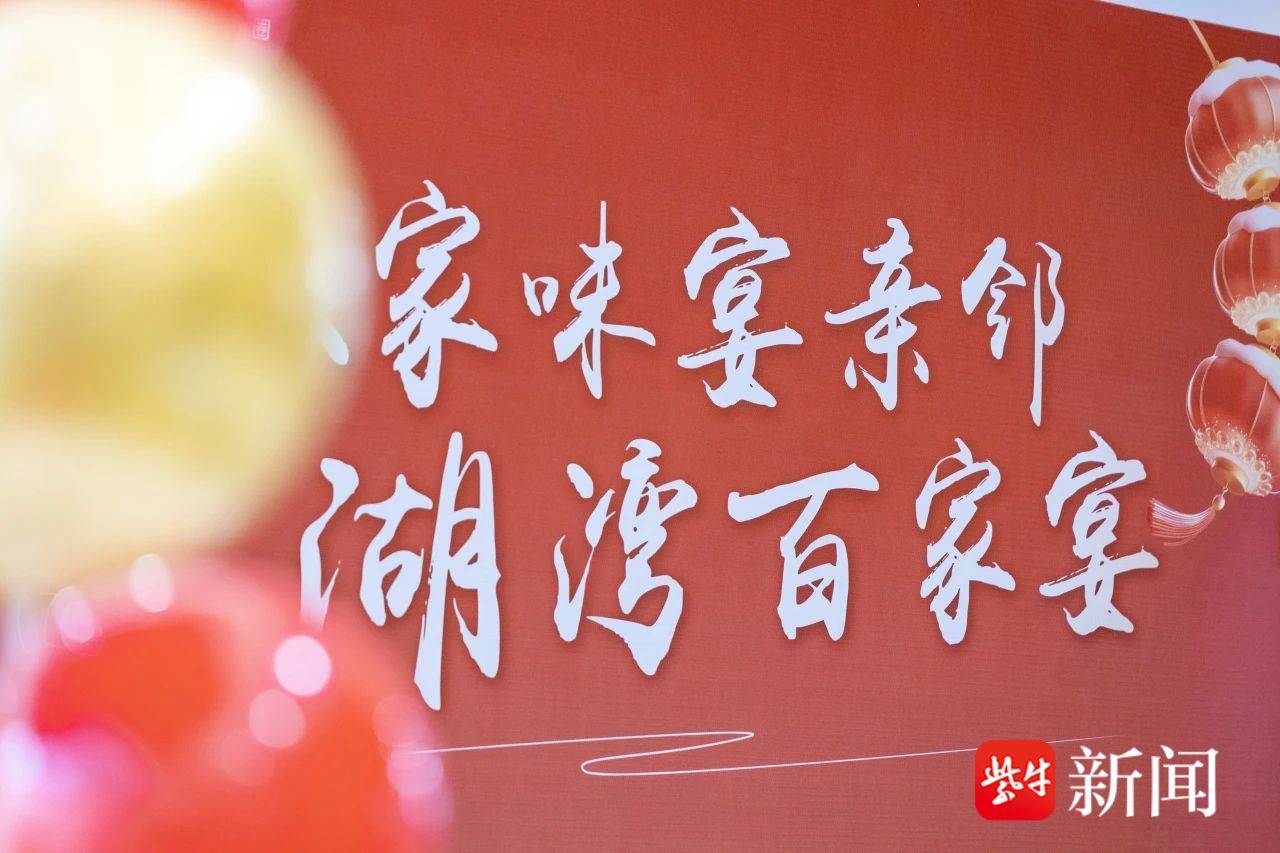 家味宴亲邻
湖湾百家宴
紫牛新闻